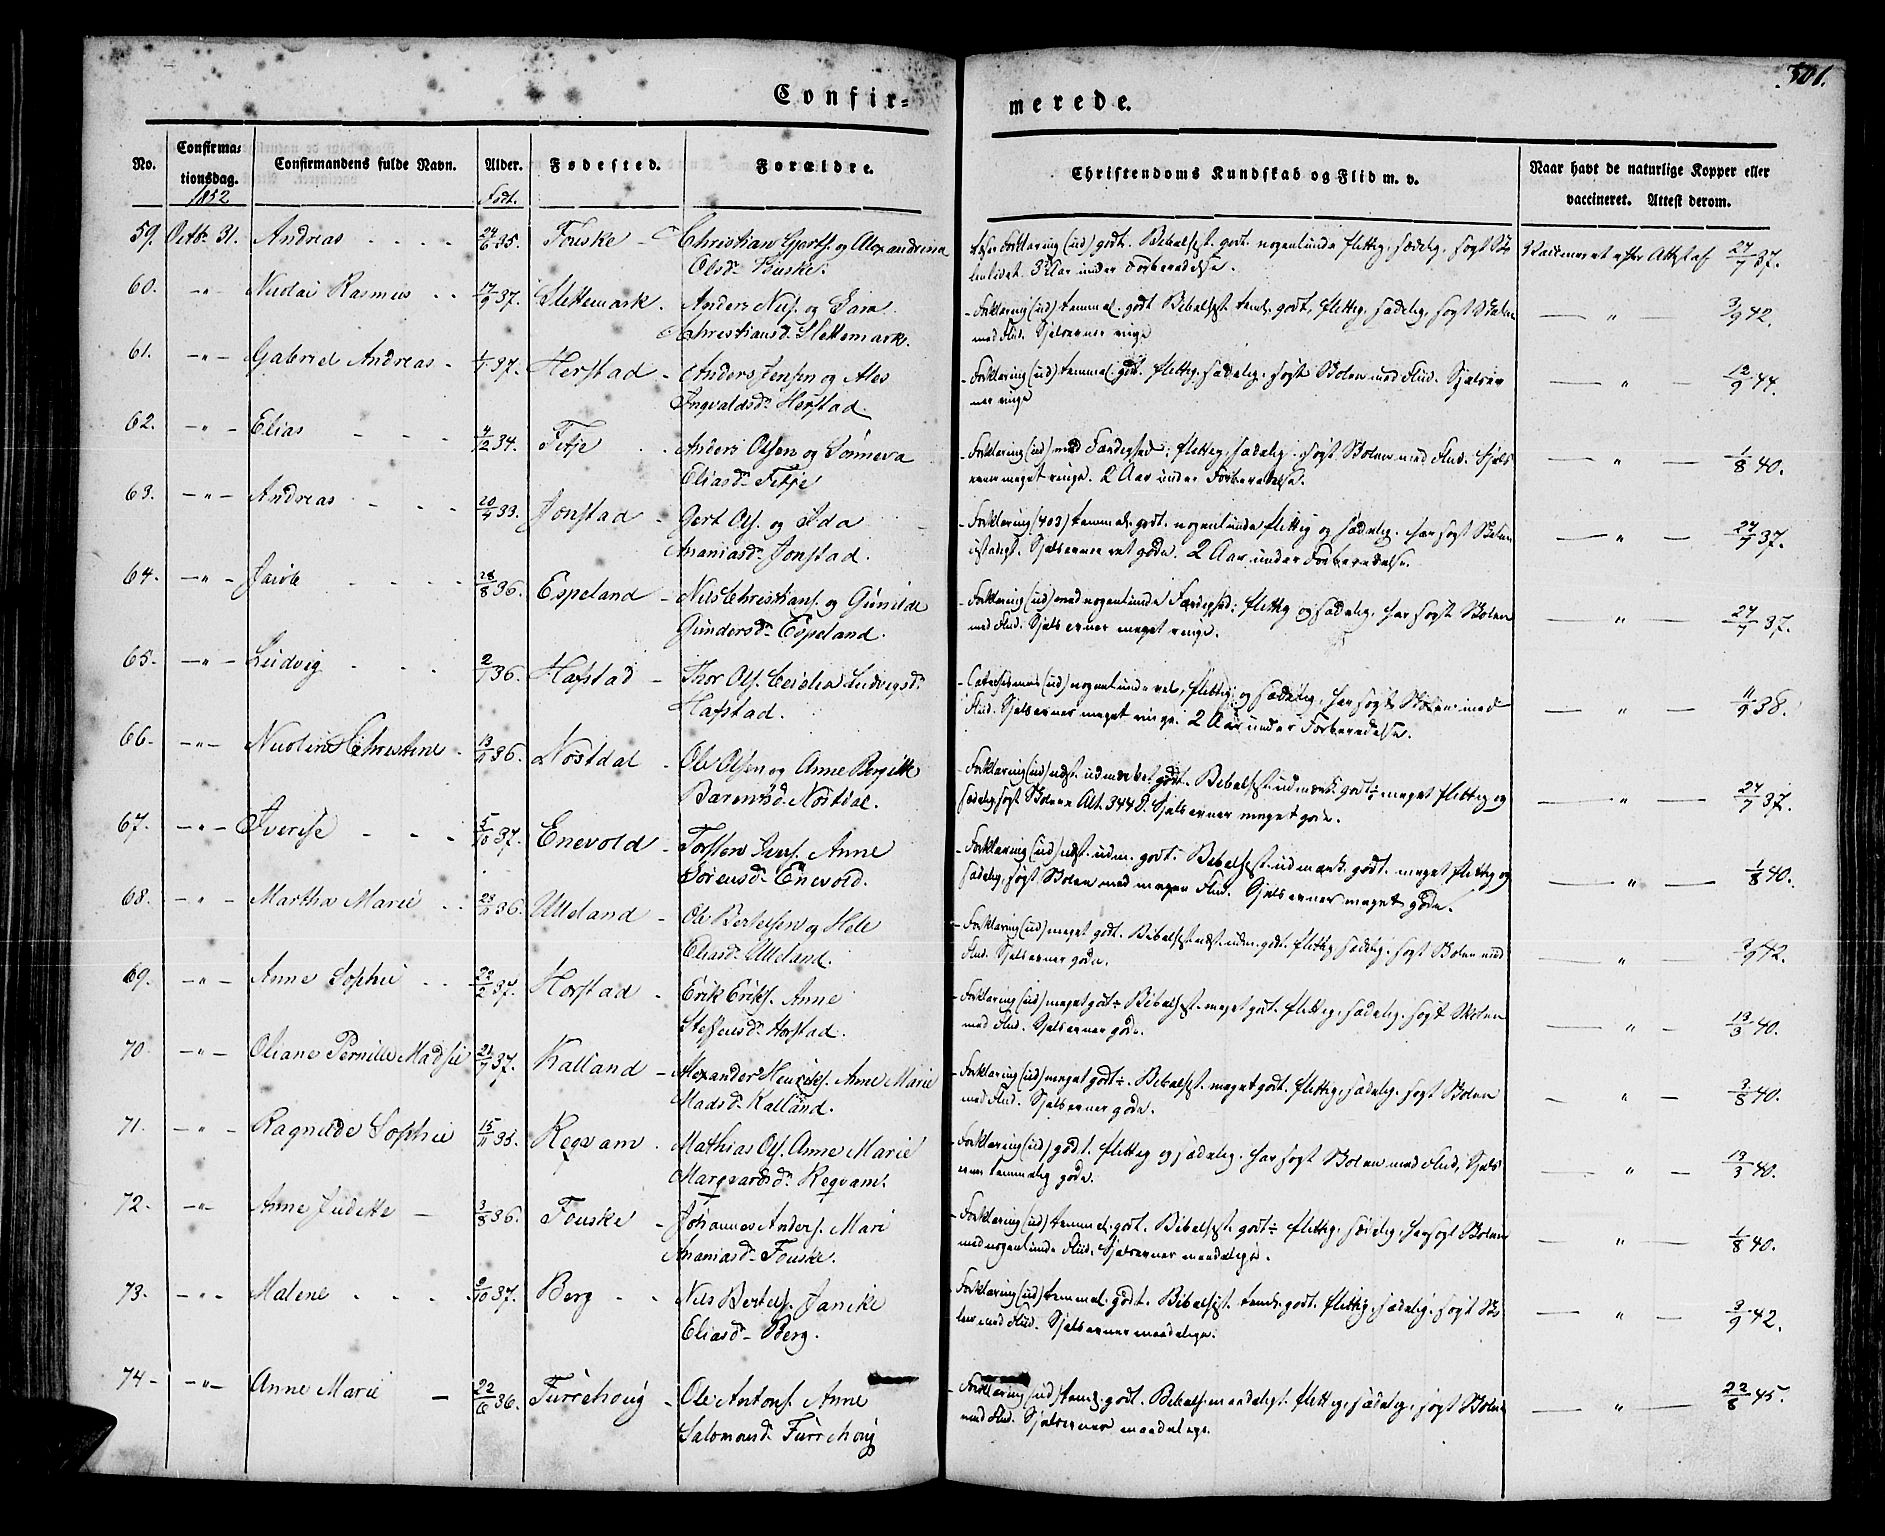 301.
Confir-
merede.
No.
Confirma-
tionsdag.
1852
Confirmandens fulde Navn.
Alder.
Født.
Fødested.
Forældre.
Christendoms Kundskab og Flid m. v.
Naar havt de naturlige Kopper eller
vaccineret. Attest derom.
59. Octbr. 31. Andreas 24/6 35. Fouske Christian Gjerts. og Alexandrina
Olsd. Fouske.
Forklaring (ud) godt. nogenlunde flittig, sædelig, søgt
3 Aar under Forberedelse.
Vaccineret efter Att. af 27/7 37.
60. -"- Nicolai Rasmus 17/9 37. Slettemark. Anders Nils. og Sara
Christiansd. Slettemark.
Forklaring (ud) temmel. godt flittig, sædelig, søgt Skolen
med Flid. Sjælsevner ringe
— " — 3/9 42.
61. -"- Gabriel Andreas 1/7 37. Herstad Anders Jensen og Ales
Ingvaldsd. Herstad.
Forklaring (ud) temmel. godt. flittig, sædelig, søgt Skolen med Flid. Sjælsev
ner ringe
— " — 12/9 44.
62. -"- Elias 4/2 34. Fitje Anders Olsen og Sønneva
Eliasd. Fitje
Forklaring (ud) med Færdighed; flittig, sædelig, søgt Skolen med Flid. Sjæls
evner meget ringe. 2 Aar under Forberedelse.
— " — 1/8 40.
63. -"- Andreas 20/4 33. Jonstad Gert Ols. og Ida
Ananiasd. Jonstad.
Forklaring (403) temmel. godt. nogenlunde flittig og sædelig. har søgt Skolen
Sjælsevner ret gode. 2 Aar under Forberedelse.
— " — 27/7 37.
64. -"- Jacob 28/8 36. Espeland Nils Christians. og Gunilde
Gundersd. Espeland.
Forklaring (ud) med nogenlunde Færdighed; flittig og sædelig, har søgt Skolen
med Flid. Sjælsevner meget ringe.
— " — 27/7 37.
65. -"- Ludvig 2/7 36. Hafstad Thor Ols. Cecilia Ludvigsd.
Hafstad.
(ud) nogenlunde vel, flittig og sædelig, har søgt Skolen med
Flid. Sjælsevner meget ringe. 2 Aar under Forberedelse.
— " — 11/9 38.
66. -"- Nicoline Christine 13/11 36. Nøstdal Ole Olsen og Anne Bergitte
Nøstdal.
Forklaring (ud) udmærket godt. udmærk. godt meget flittig og
sædelig, søgt Skolen Sjælsevner meget gode.
— " — 27/7 37.
67. -"- Iverise 5/10 37. Enevold Torsten Ivers. Anne
Sørensd. Enevold.
Forklaring (ud) udm. godt. udmærk. godt. meget flittig og
sædelig, søgt Skolen med megen Flid. Sjælsevner meget gode.
— " — 1/8 40.
68. -"- Martha Marie 23/11 36. Ulleland Ole Bertelsen og Hele
Eliasd. Ulleland.
Forklaring (ud) meget godt. udm. godt. flittig sædelig, søgt Skolen med
Flid. Sjælsevner gode.
— " — 3/9 42.
69. -"- Anne Sophie 22/2 37. Horstad Erik Eriks. Anne
Steffensd. Horstad.
Forklaring (ud) meget godt meget godt. flittig, sædelig, søgt Skolen
med Flid. Sjælsevner gode.
— " — 13/3 40.
70. -"- Oliane Pernille Madsie 21/7 37. Kalland Alexander Henriks. Anne Marie
Madsd. Kalland.
Forklaring (ud) meget godt. meget godt. flittig, sædelig, søgt Skolen
med Flid. Sjælsevner gode.
— " — 3/8 40.
71. -"- Ragnilde Sophie 15/11 35. Reqvam Mathias Ols. Anne Marie
Marqvardsd. Reqvam.
Forklaring (ud) godt. flittig og sædelig, har søgt Skolen med Flid, Sjæls
evner temmelig gode.
— " — 13/3 40.
72. -"- Anne Judette 3/8 36. Fouske Johannes Anders. Mari
Ananiasd. Fouske.
Forklaring (ud) temmel. godt. godt flittig, sædelig, har søgt Skolen
med nogenlunde Flid. Sjælsevner maadelige.
— " — 1/8 40.
73. -"- Malene 9/10 37. Berg Nils Bertels. Janike
Eliasd. Berg.
Forklaring (ud) temmel. godt. godt. flittig, sædelig, søgt Sko
len med Flid. Sjælsevner maadelige.
— " — 3/9 42.
74 -"- Anne Marie 22/6 36. Furrehoug Ole Antons. Anne
Salomonsd. Furrehoug
Forklaring (ud) godt. maadeligt. flittig, sædelig, søgt Skolen
med Flid. Sjælsevner maadelige.
— " — 22/8 45.